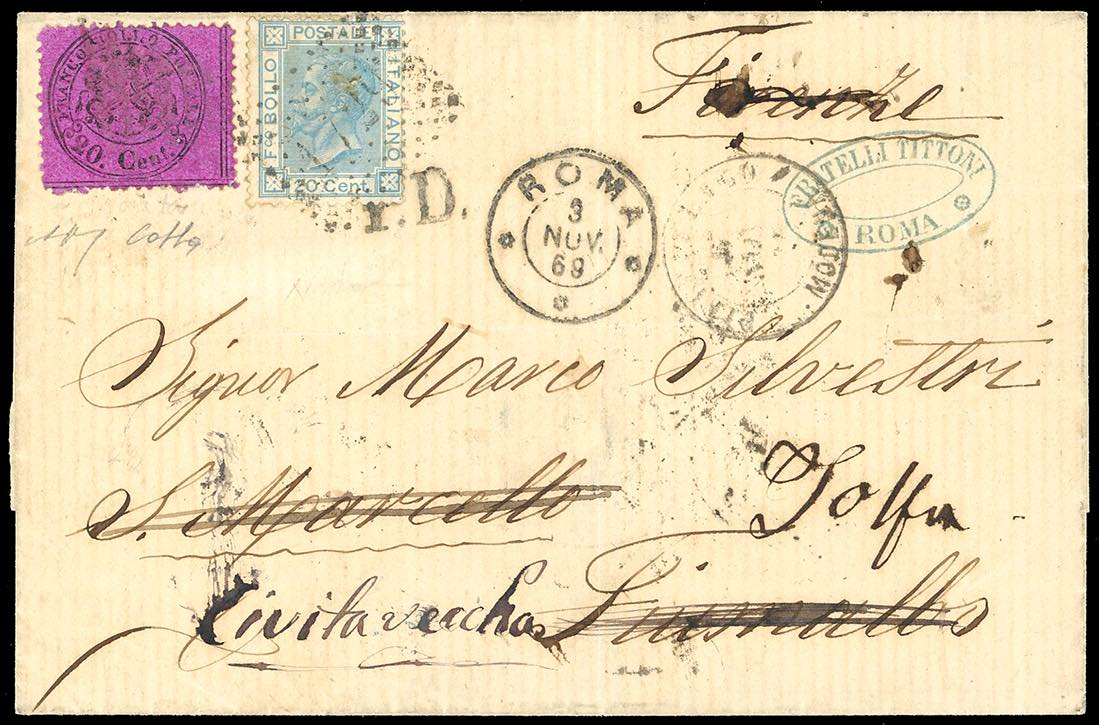 FRANCO BOLLO POSTALE
20. Cent.
POSTALE
Fco BOLLO
ITALIANO
20 Cent.
Firenze
P.D.
ROMA
3
NOV.
69
FRATELLI TITTONI
ROMA
Signor Marco Silvestri
S. Marcello
Tolfa
Civitavecchia